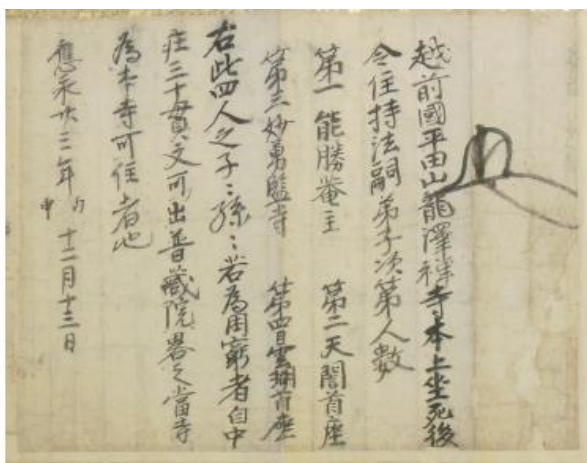 越前國平田山龍澤禅寺本上坐死後
令住持法嗣弟子次第人数
第一能勝菴主 第二天誾首座
第三妙勇監寺 第四曇䋄首座
右此四人之子〻孫〻若為困窮者自中
庄三十貫文可出普蔵院畧之當寺
為本寺可住者也
應永廿三年丙申十二月十三日